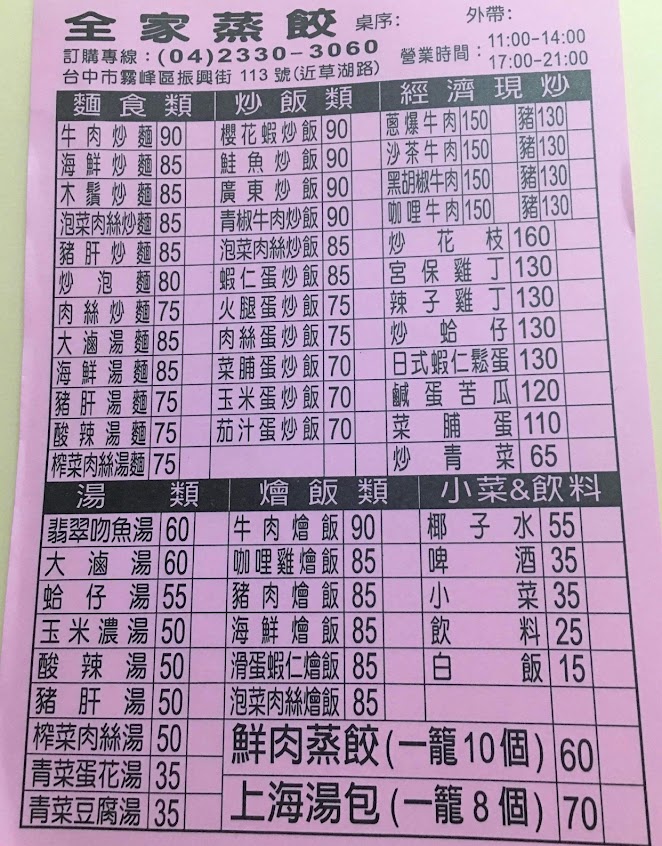 全家蒸餃 桌序: 外帶:
訂購專線:(04)2330-3060 營業時間: 11:00-14:00
台中市霧峰區振興街113號(近草湖路) 17:00-21:00
麵食類
牛肉炒麵 90
海鮮炒麵 85
木鬚炒麵 85
泡菜肉絲炒麵 85
豬肝炒麵 85
炒泡麵 80
肉絲炒麵 75
大滷湯麵 85
海鮮湯麵 85
豬肝湯麵 75
酸辣湯麵 75
榨菜肉絲湯麵 75
炒飯類
櫻花蝦炒飯 90
鮭魚炒飯 90
廣東炒飯 90
青椒牛肉炒飯 90
泡菜肉絲炒飯 85
蝦仁蛋炒飯 85
火腿蛋炒飯 75
肉絲蛋炒飯 75
菜脯蛋炒飯 70
玉米蛋炒飯 70
茄汁蛋炒飯 70
經濟現炒
蔥爆牛肉 150 豬 130
沙茶牛肉 150 豬 130
黑胡椒牛肉 150 豬 130
咖哩牛肉 150 豬 130
炒花枝 160
宮保雞丁 130
辣子雞丁 130
炒蛤仔 130
日式蝦仁鬆蛋 130
鹹蛋苦瓜 120
菜脯蛋 110
炒青菜 65
湯類
翡翠吻魚湯 60
大滷湯 60
蛤仔湯 55
玉米濃湯 50
酸辣湯 50
豬肝湯 50
榨菜肉絲湯 50
青菜蛋花湯 35
青菜豆腐湯 35
燴飯類
牛肉燴飯 90
咖哩雞燴飯 85
豬肉燴飯 85
海鮮燴飯 85
滑蛋蝦仁燴飯 85
泡菜肉絲燴飯 85
小菜&飲料
椰子水 55
啤酒 35
小菜 35
飲料 25
白飯 15
鮮肉蒸餃(一籠10個) 60
上海湯包(一籠8個) 70